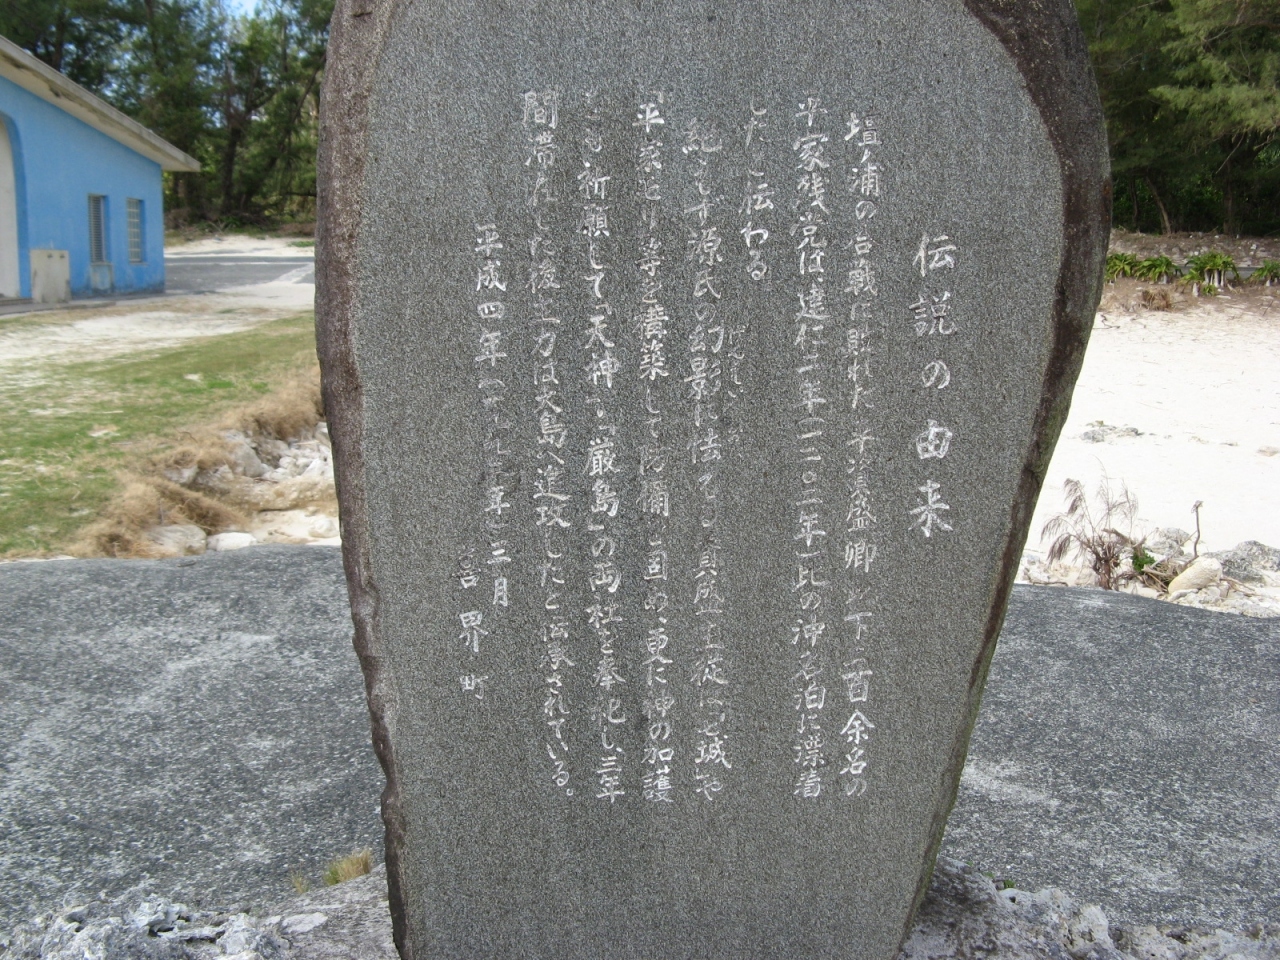 伝説の由来
壇ノ浦の合戦に敗れた平資盛卿以下二百余名の
平家残党は、建仁二年(一二〇二年)此の沖名泊に漂着
したと伝わる
絶えず源氏の幻影に怯える資盛主従は「七城」や
「平家森」等を構築して防備に固め、更に神の加護
をも祈願して、「天神」「厳島」の両社を奉祀し、三年
間滞在した後、一方は大島へ進攻したと伝承されている。
平成四年(一九九二年)三月
喜界町